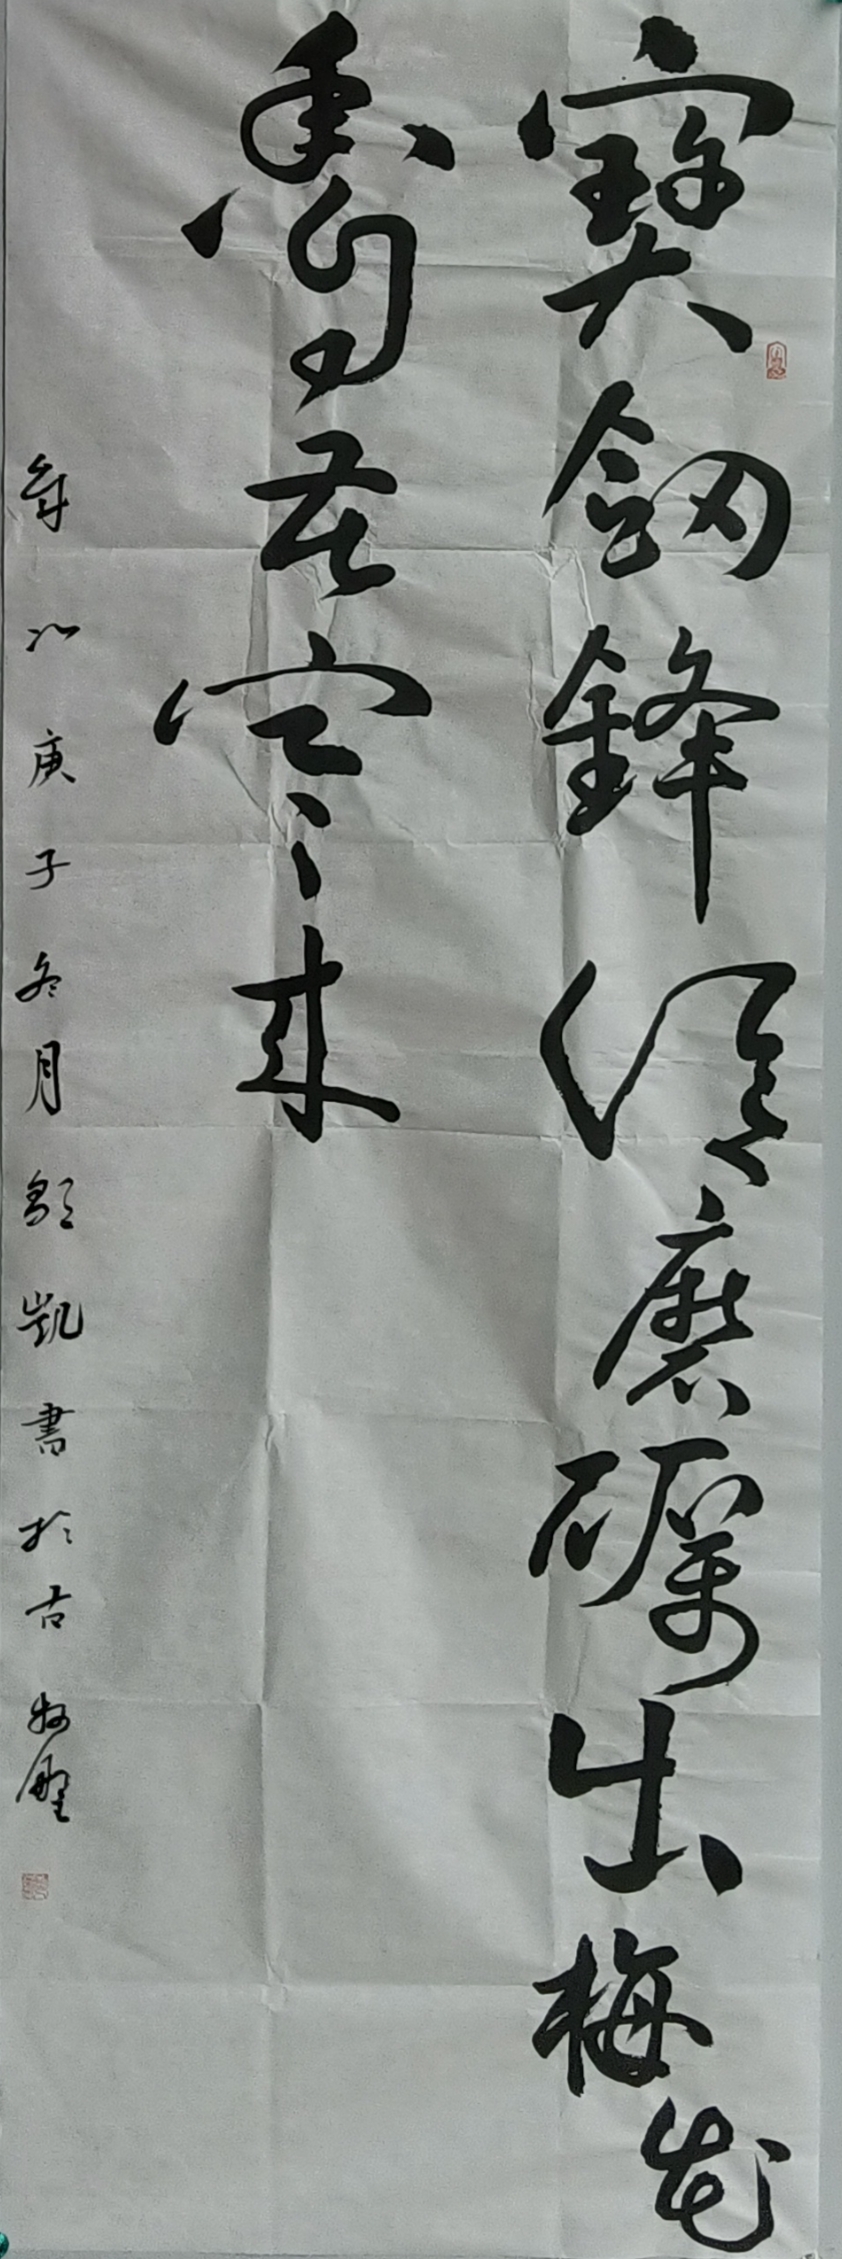 寶劔鋒從磨礪出梅花
香自苦寒來
歲次庚子冬月鄒凱書於古牧野